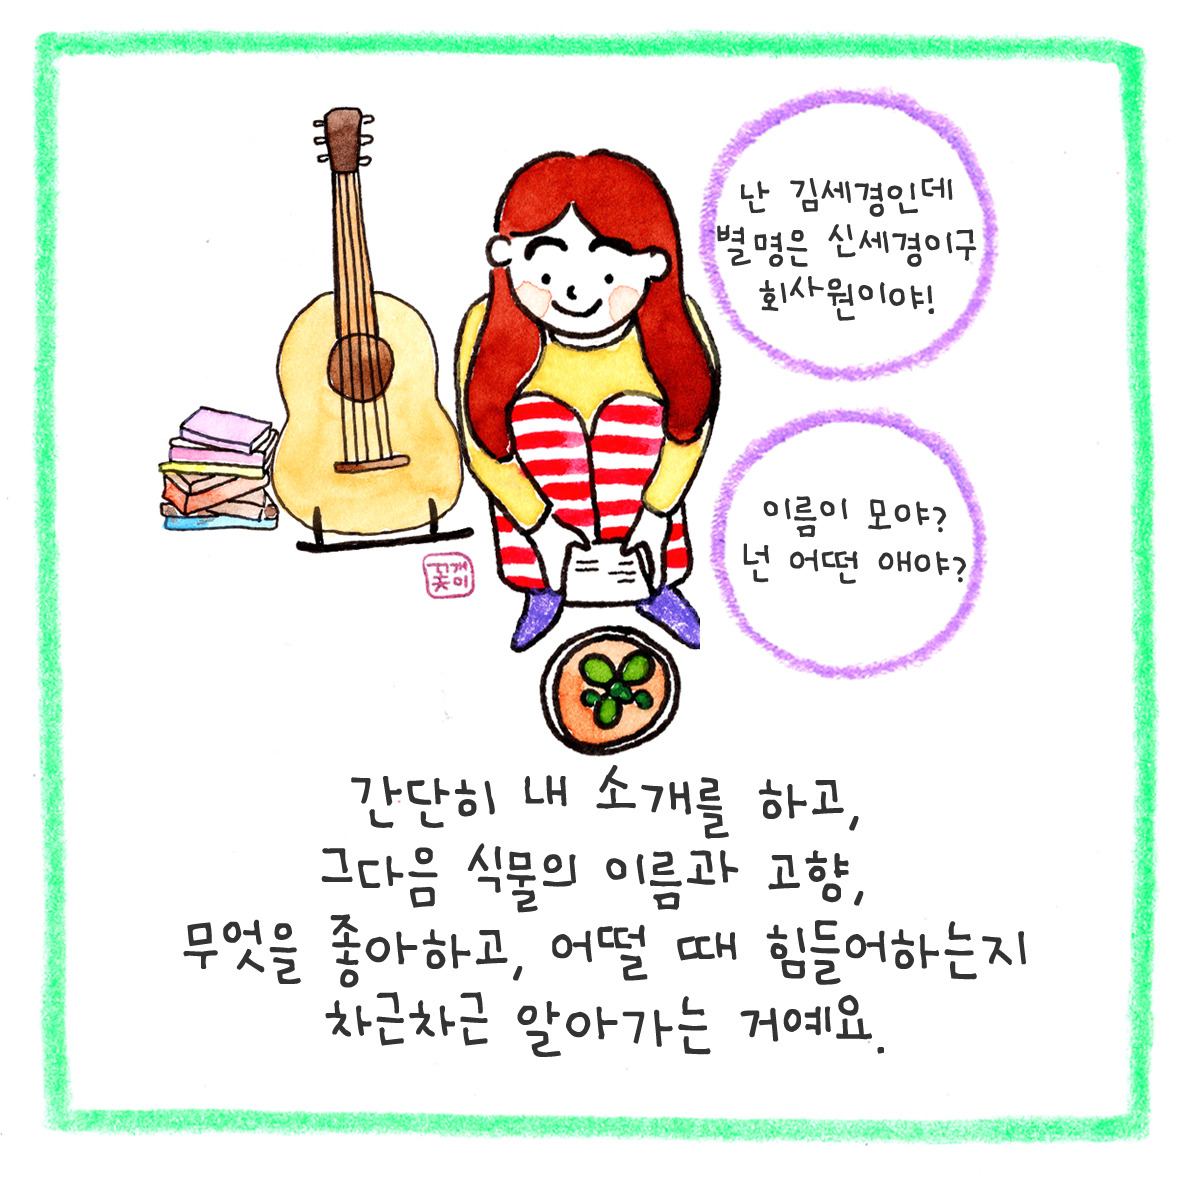 난 김세경인데
별명은 신세경이구
회사원이야!
이름이 모야?
넌 어떤 애야?
꽃개미
간단히 내 소개를 하고,
그다음 식물의 이름과 고향,
무엇을 좋아하고, 어떨 때 힘들어하는지
차근차근 알아가는 거예요.